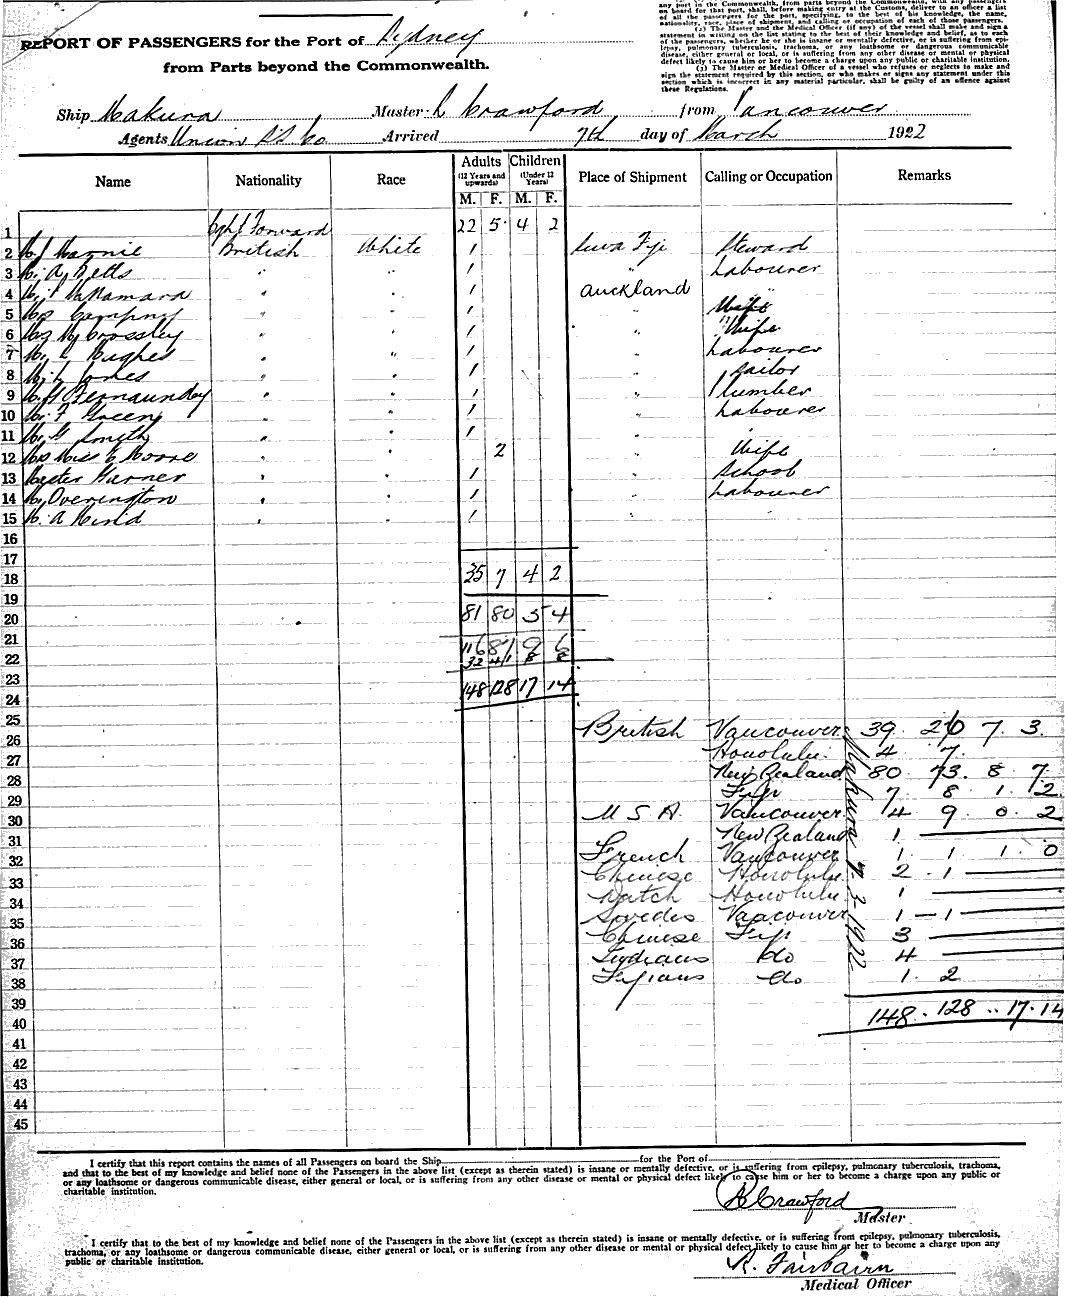 any port in the Commonwealth, from parts beyond the Commonwealth, with any passengers
on board for that port, shall, before making entry at the Customs, deliver to an officer a list
of all the passengers for the port, specifying, to the best of his knowledge, the name,
nationality, race, place of shipment, and calling or occupation of each of those passengers.
(2) The Master and the Medical Officer (if any) of the vessel shall make and sign a
statement in writing on the list stating to the best of their knowledge and belief, as to each
of the passengers, whether he or she is insane or mentally defective, or is suffering from epi-
lepsy, pulmonary tuberculosis, trachoma, or any loathsome or dangerous communicable
disease, either general or local, or is suffering from any other disease or mental or physical
defect likely to cause him or her to become a charge upon any public or charitable institution.
(3) The Master or Medical Officer of a vessel who refuses or neglects to make and
sign the statement required by this section, or who makes or signs any statement under this
section which is incorrect in any material particular, shall be guilty of an offence against
these Regulations.
REPORT OF PASSENGERS for the Port of Sydney
from Parts beyond the Commonwealth.
Ship Makura Master R Crawford from Vancouver
Agents Union SS Co Arrived 7th day of March 1922
Name Nationality Race Adults (12 Years and upwards) Children (Under 12 Years) Place of Shipment Calling or Occupation Remarks
M. F. M. F.
1 Bght Forward 22 5 4 2
2 British White 1 Suva Fiji Steward
3 Mr A Betts " " 1 " Labourer
4 Mr McNamara " " 1 Auckland "
5 " " 1 " Wife
6 Crossley " " 1 " Wife
7 Mr Hughes " " 1 " Labourer
8 Mr Jones " " 1 " Sailor
9 " " 1 " Plumber
10 Mr F Green " " 1 " Labourer
11 Mr G Smith " " 1 " "
12 Mrs Miss E Moore " " 2 " Wife
13 Mester " " 1 " School
14 Mr Overington " " 1 " Labourer
15 Mr A " " 1 " "
16
17
18 35 7 4 2
19
20 81 80 5 4
21 116 87 9 6
22 32 41 8 8
23
24 148 128 17 14
25 British Vancouver 39 20 7 3
26 Honolulu 4 7
27 New Zealand 80 73 8 7
28 Fiji 7 8 1 2
29 U S A. Vancouver 4 9 0 2
30 New Zealand 1
31 French Vancouver 1 1 1 0
32 Chinese Honolulu 2 1
33 Dutch Honolulu 1
34 Swedes Vancouver 1 1
35 Chinese Fiji 3
36 Indians do 4
37 Fijians do 1 2
38
39 148 128 17 14
40
41
42
43
44
45
Makura 7.3.1922
I certify that this report contains the names of all Passengers on board the Ship for the Port of
and that to the best of my knowledge and belief none of the Passengers in the above list (except as therein stated) is insane or mentally defective, or is suffering from epilepsy, pulmonary tuberculosis, trachoma,
or any loathsome or dangerous communicable disease, either general or local, or is suffering from any other disease or mental or physical defect likely to cause him or her to become a charge upon any public or
charitable institution.
R Crawford
Master
I certify that to the best of my knowledge and belief none of the Passengers in the above list (except as therein stated) is insane or mentally defective, or is suffering from epilepsy, pulmonary tuberculosis,
trachoma, or any loathsome or dangerous communicable disease, either general or local, or is suffering from any other disease or mental or physical defect likely to cause him or her to become a charge upon any
public or charitable institution.
R. Fairbairn
Medical Officer